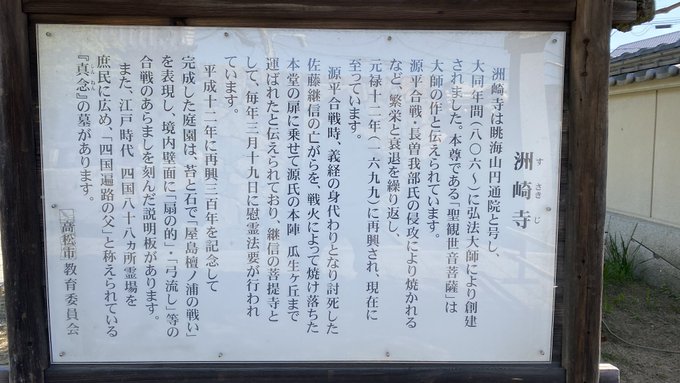 洲崎寺
すさきじ
洲崎寺は眺海山円通院と号し、
大同年間(八〇六~)に弘法大師により創建
されました。本尊である「聖観世音菩薩」は
大師の作と伝えられています。
源平合戦・長曽我部氏の侵攻により焼かれる
など、繁栄と衰退を繰り返し、
元禄十二年(一六九九)に再興され、現在に
至っています。
源平合戦時、義経の身代わりとなり討死した
佐藤継信の亡がらを、戦火によって焼け落ちた
本堂の扉に乗せて源氏の本陣 瓜生ヶ丘まで
運ばれたと伝えられており、継信の菩提寺と
して、毎年三月十九日に慰霊法要が行われ
ています。
平成十二年に再興三百年を記念して
完成した庭園は、苔と石で「屋島檀ノ浦の戦い」
を表現し、境内壁面に「扇の的」・「弓流し」等の
合戦のあらましを刻んだ説明板があります。
また、江戸時代 四国八十八ヵ所霊場を
庶民に広め、「四国遍路の父」と称えられている
『真念』の墓があります。
しんねん
高松市教育委員会